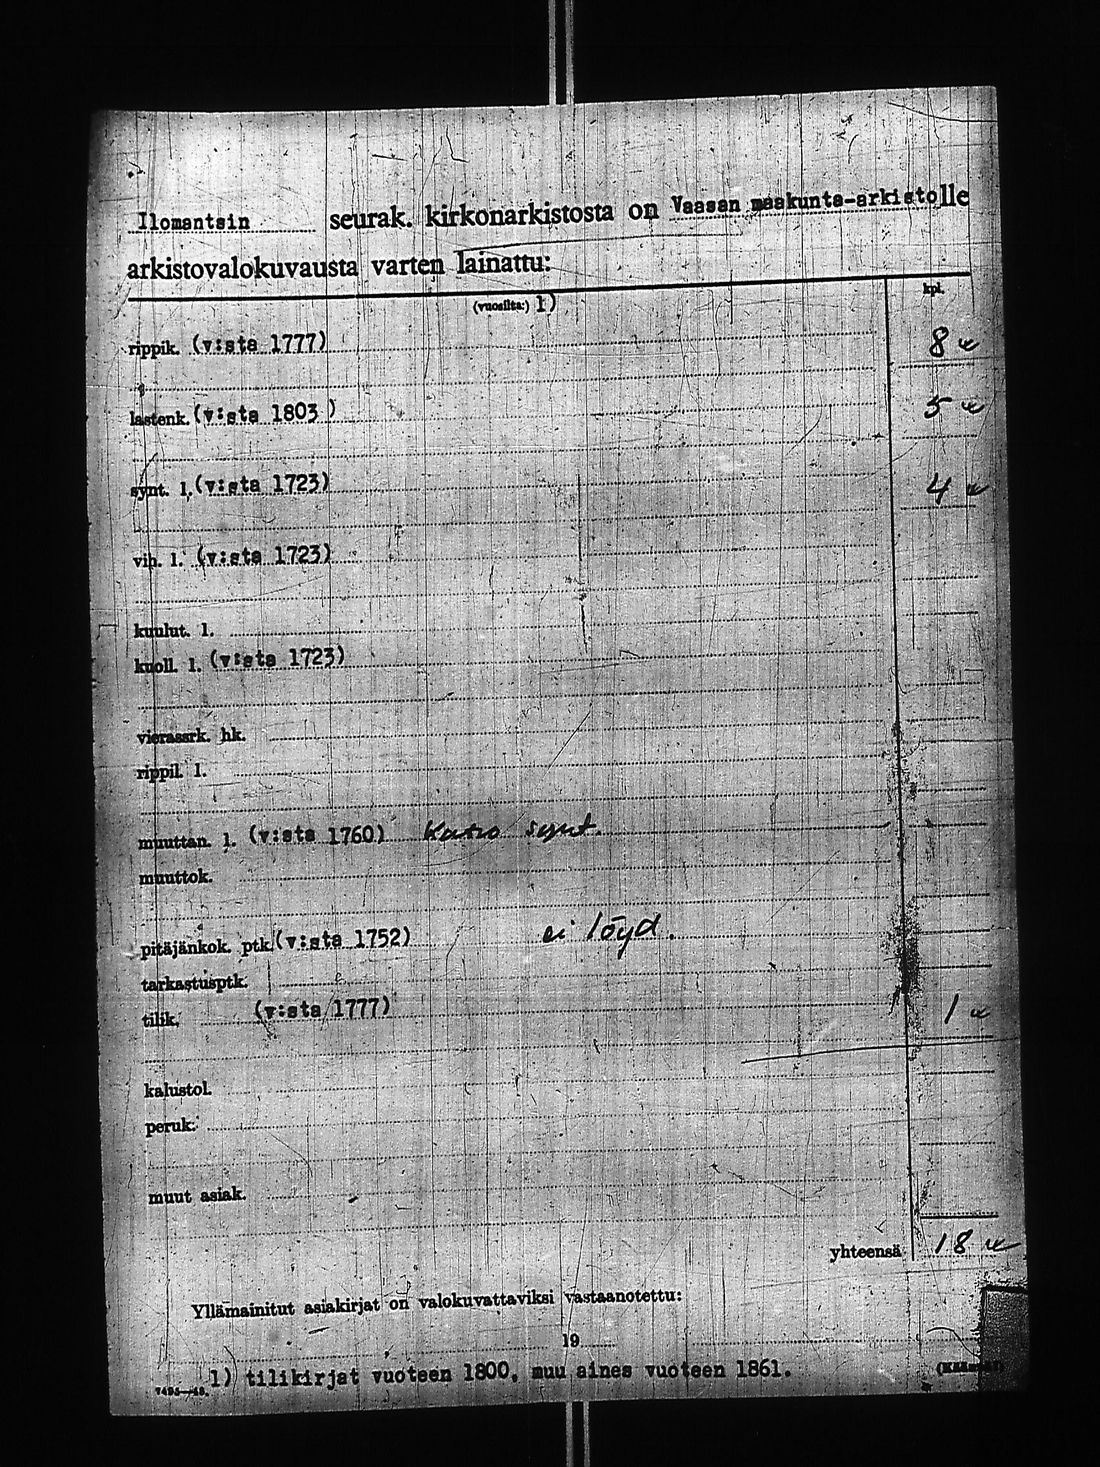 Ilomantsin seurak. kirkonarkistosta on Vaasan maakunta-arkistolle
arkistovalokuvausta varten lainattu:
(vuosilta:) 1) kpl.
rippik. (v:sta 1777) 8
lastenk. (v:sta 1803 ) 5
synt. l. (v:sta 1723) 4
vih. l. (v:sta 1723)
kuulut. l.
kuoll. l. (v:sta 1723)
vierassrk. hk.
rippil. l.
muuttan. l. (v:sta 1760) Katso synt.
muuttok.
pitäjänkok. ptk. (v:sta 1752) ei löyd.
tarkastusptk.
tilik. (v:sta 1777) 1
kalustol.
peruk.
muut asiak.
yhteensä 18
Yllämainitut asiakirjat on valokuvattaviksi vastaanotettu:
19
1) tilikirjat vuoteen 1800, muu aines vuoteen 1861.